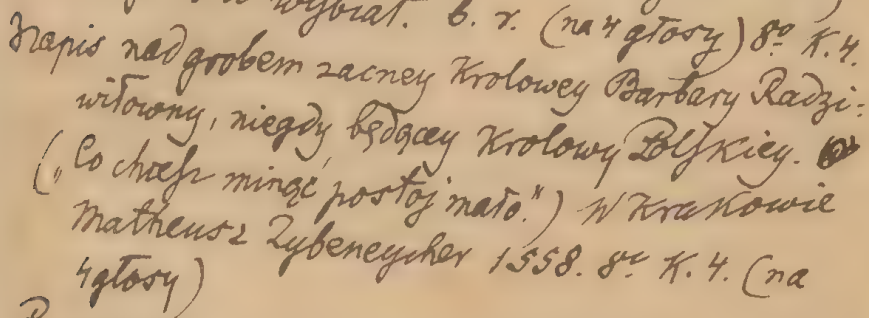 wybrał. b. r. (na 4 głosy) 8º K. 4.
Napis nad grobem zacney Krolowey Barbary Radzi-
wiłowny, niegdy będącey Krolowy Polskiey.
(„Co chcesz minąć, postoj mało.") W Krakowie
Matheusz Zybeneycher 1558. 8º K. 4. (na
4 głosy)